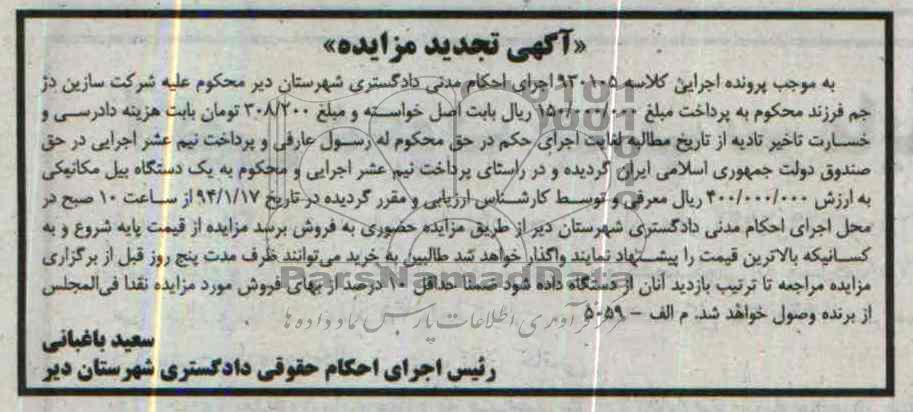 «آگهی تجدید مزایده»
به موجب پرونده اجرایی کلاسه ۹۳۰۱۰۵ اجرای احکام مدنی دادگستری شهرستان دیر محکوم علیه شرکت سازین دژ
جم فرزند محکوم به پرداخت مبلغ ریال بابت اصل خواسته و مبلغ ۳۰۸/۲۰۰ تومان بابت هزینه دادرسی و
خسارت تاخیر تادیه از تاریخ مطالبه لغایت اجرای حکم در حق محکوم له رسول عارفی و پرداخت نیم عشر اجرایی در حق
صندوق دولت جمهوری اسلامی ایران گردیده و در راستای پرداخت نیم عشر اجرایی و محکوم به یک دستگاه بیل مکانیکی
به ارزش ۴۰۰/۰۰۰/۰۰۰ ریال معرفی و توسط کارشناس ارزیابی و مقرر گردیده در تاریخ ۹۴/۱/۱۷ از ساعت ۱۰ صبح در
محل اجرای احکام مدنی دادگستری شهرستان دیر از طریق مزایده حضوری به فروش برسد مزایده از قیمت پایه شروع و به
کسانیکه بالاترین قیمت را پیشنهاد نمایند واگذار خواهد شد طالبین به خرید می‌توانند ظرف مدت پنج روز قبل از برگزاری
مزایده مراجعه تا ترتیب بازدید آنان از دستگاه داده شود ضمنا حداقل ۱۰ درصد از بهای فروش مورد مزایده نقدا فی‌المجلس
از برنده وصول خواهد شد. م الف – ۵۰۵۹
سعید باغبانی
رئیس اجرای احکام حقوقی دادگستری شهرستان دیر
ParsNamadData
مرکز فرآوری اطلاعات پارس نماد داده ها